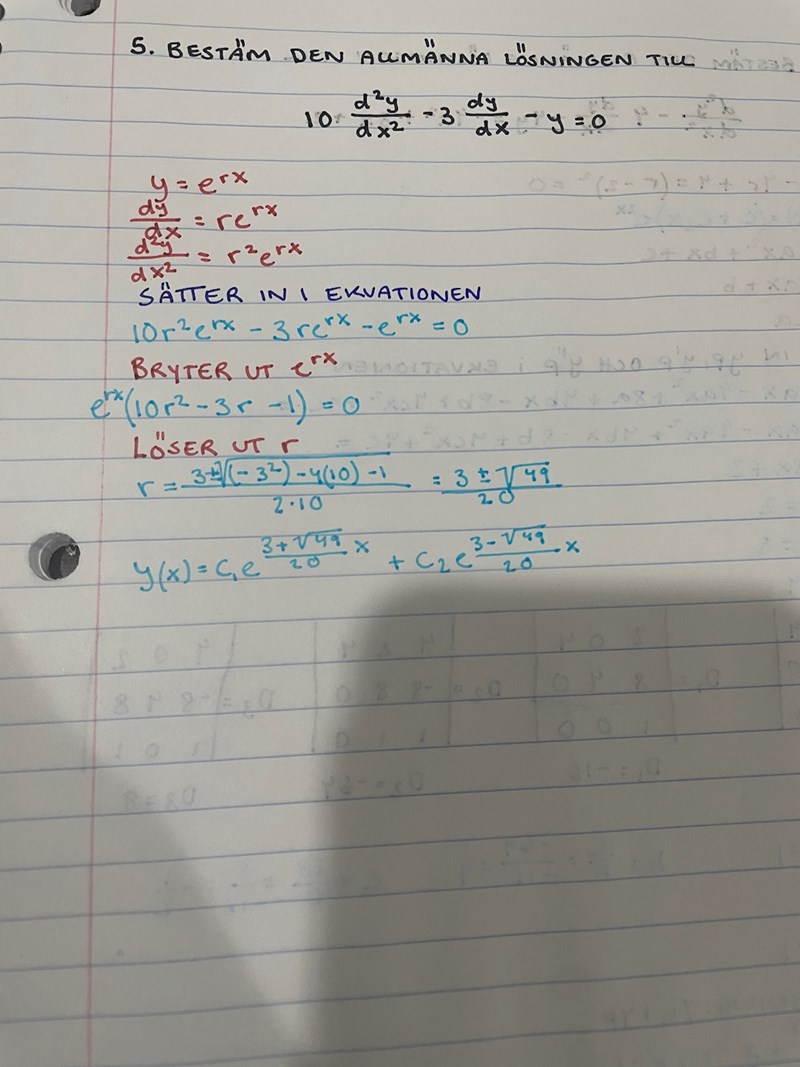 5. BESTÄM DEN ALLMÄNNA LÖSNINGEN TILL
10 d²y/dx² - 3 dy/dx - y = 0
y = e^rx
dy/dx = re^rx
d²y/dx² = r²e^rx
SÄTTER IN I EKVATIONEN
10r²e^rx - 3re^rx - e^rx = 0
BRYTER UT e^rx
e^rx(10r² - 3r - 1) = 0
LÖSER UT r
r = (3±√((-3²)-4(10)-1))/(2·10) = (3±√49)/20
y(x) = C₁e^((3+√49)/20 x) + C₂e^((3-√49)/20 x)